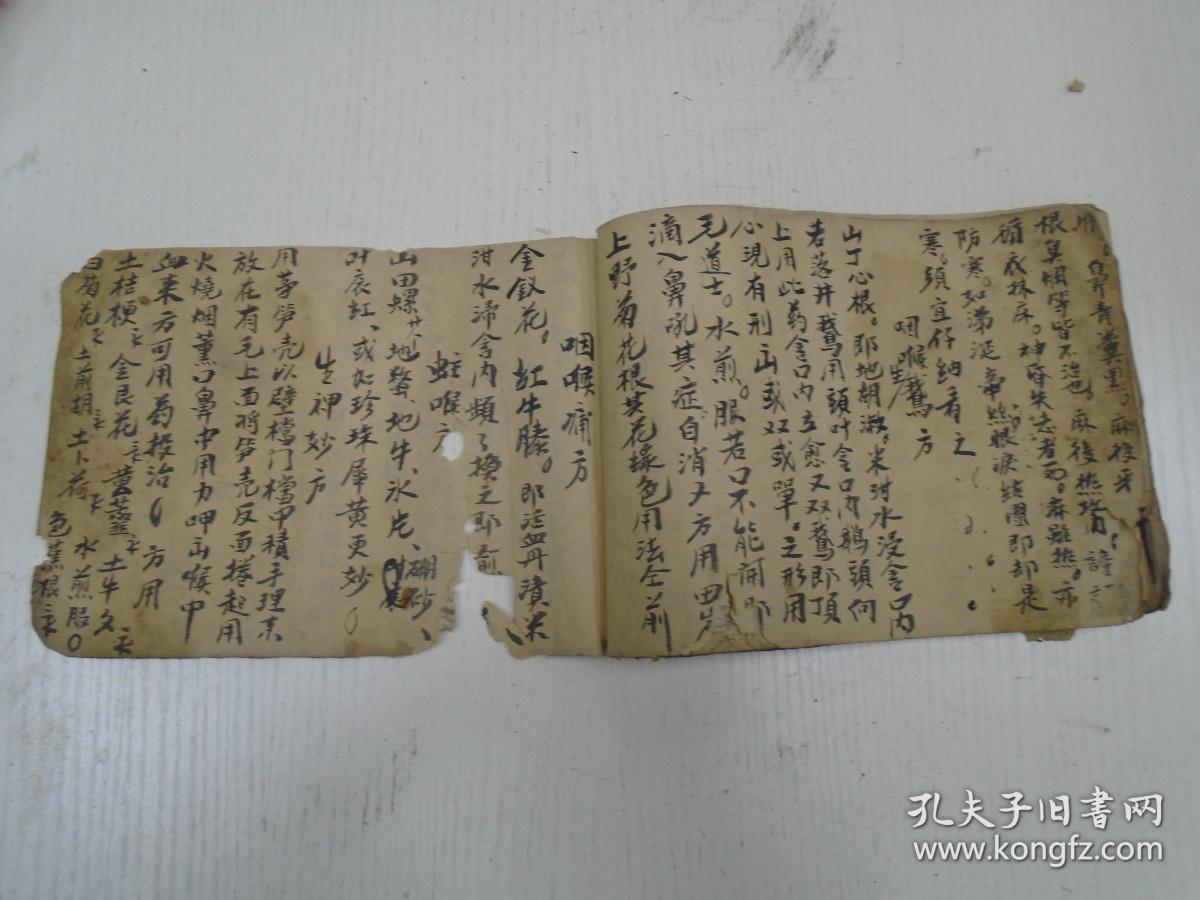 鼻青糞黑。麻後牙
根臭烟等皆不治也。麻後熱
循衣抹床。神昏失志者。麻雖热。亦
防寒。如涕涎 眼淚結團即却是
寒。頭宜仔細看之
咽喉生鵞方
山丁心根。即地胡淑。米泔水浸含口内
若落井鵞用頭叶含口内鵝頭向
上用此药含口内立愈又双鵞即頂
心現有刑山或双或單。之形用
毛道士。水煎。服若口不能開即
滴入鼻吼其症自消又方用田岁
上野菊花根其花緣色用法仝前
咽喉痛方
金釵花。紅牛膝。即活血丹漬米
泔水渧含内頻了換之即愈
蛀喉方
山田螺廿、地蟞、地牛、氷片、硼砂、
叶底紅、或加珍珠犀黄更妙
生神妙方
用茅笋壳以壁檔门檔甲積手理末
放在有毛上面將笋壳反面捲起用
火燒烟薰口鼻中用力呷山喉中
血来方可用药投治 方用
土桔梗 金艮花 土牛夕
白菊花 土前胡 土卜荷 水煎服。
色蕉根
孔夫子旧书网
www.kongfz.com